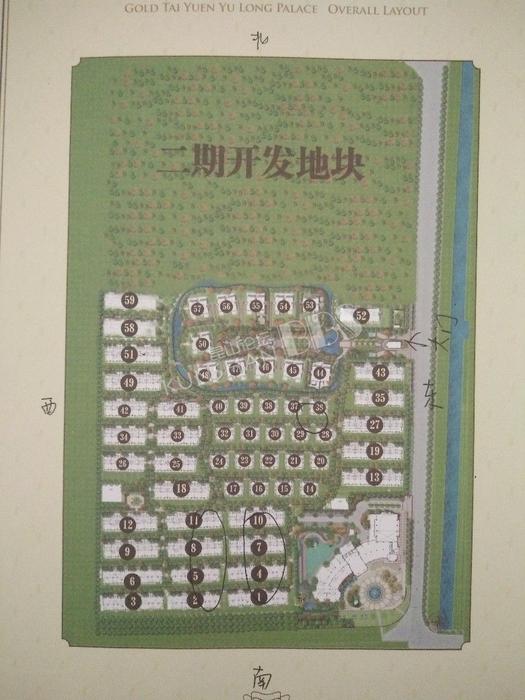 GOLD TAI YUEN YU LONG PALACE OVERALL LAYOUT
北
二期开发地块
59 57 56 55 54 53 52
58
51 50 大门
49 48 47 46 45 44 43
西 东
42 41 40 39 38 37 35
34 33 32 31 30 29 28 27
26 25 24 23 22 21 20 19
18 17 16 15 14 13
12 11 10
9 8 7
6 5 4
3 2 1
南